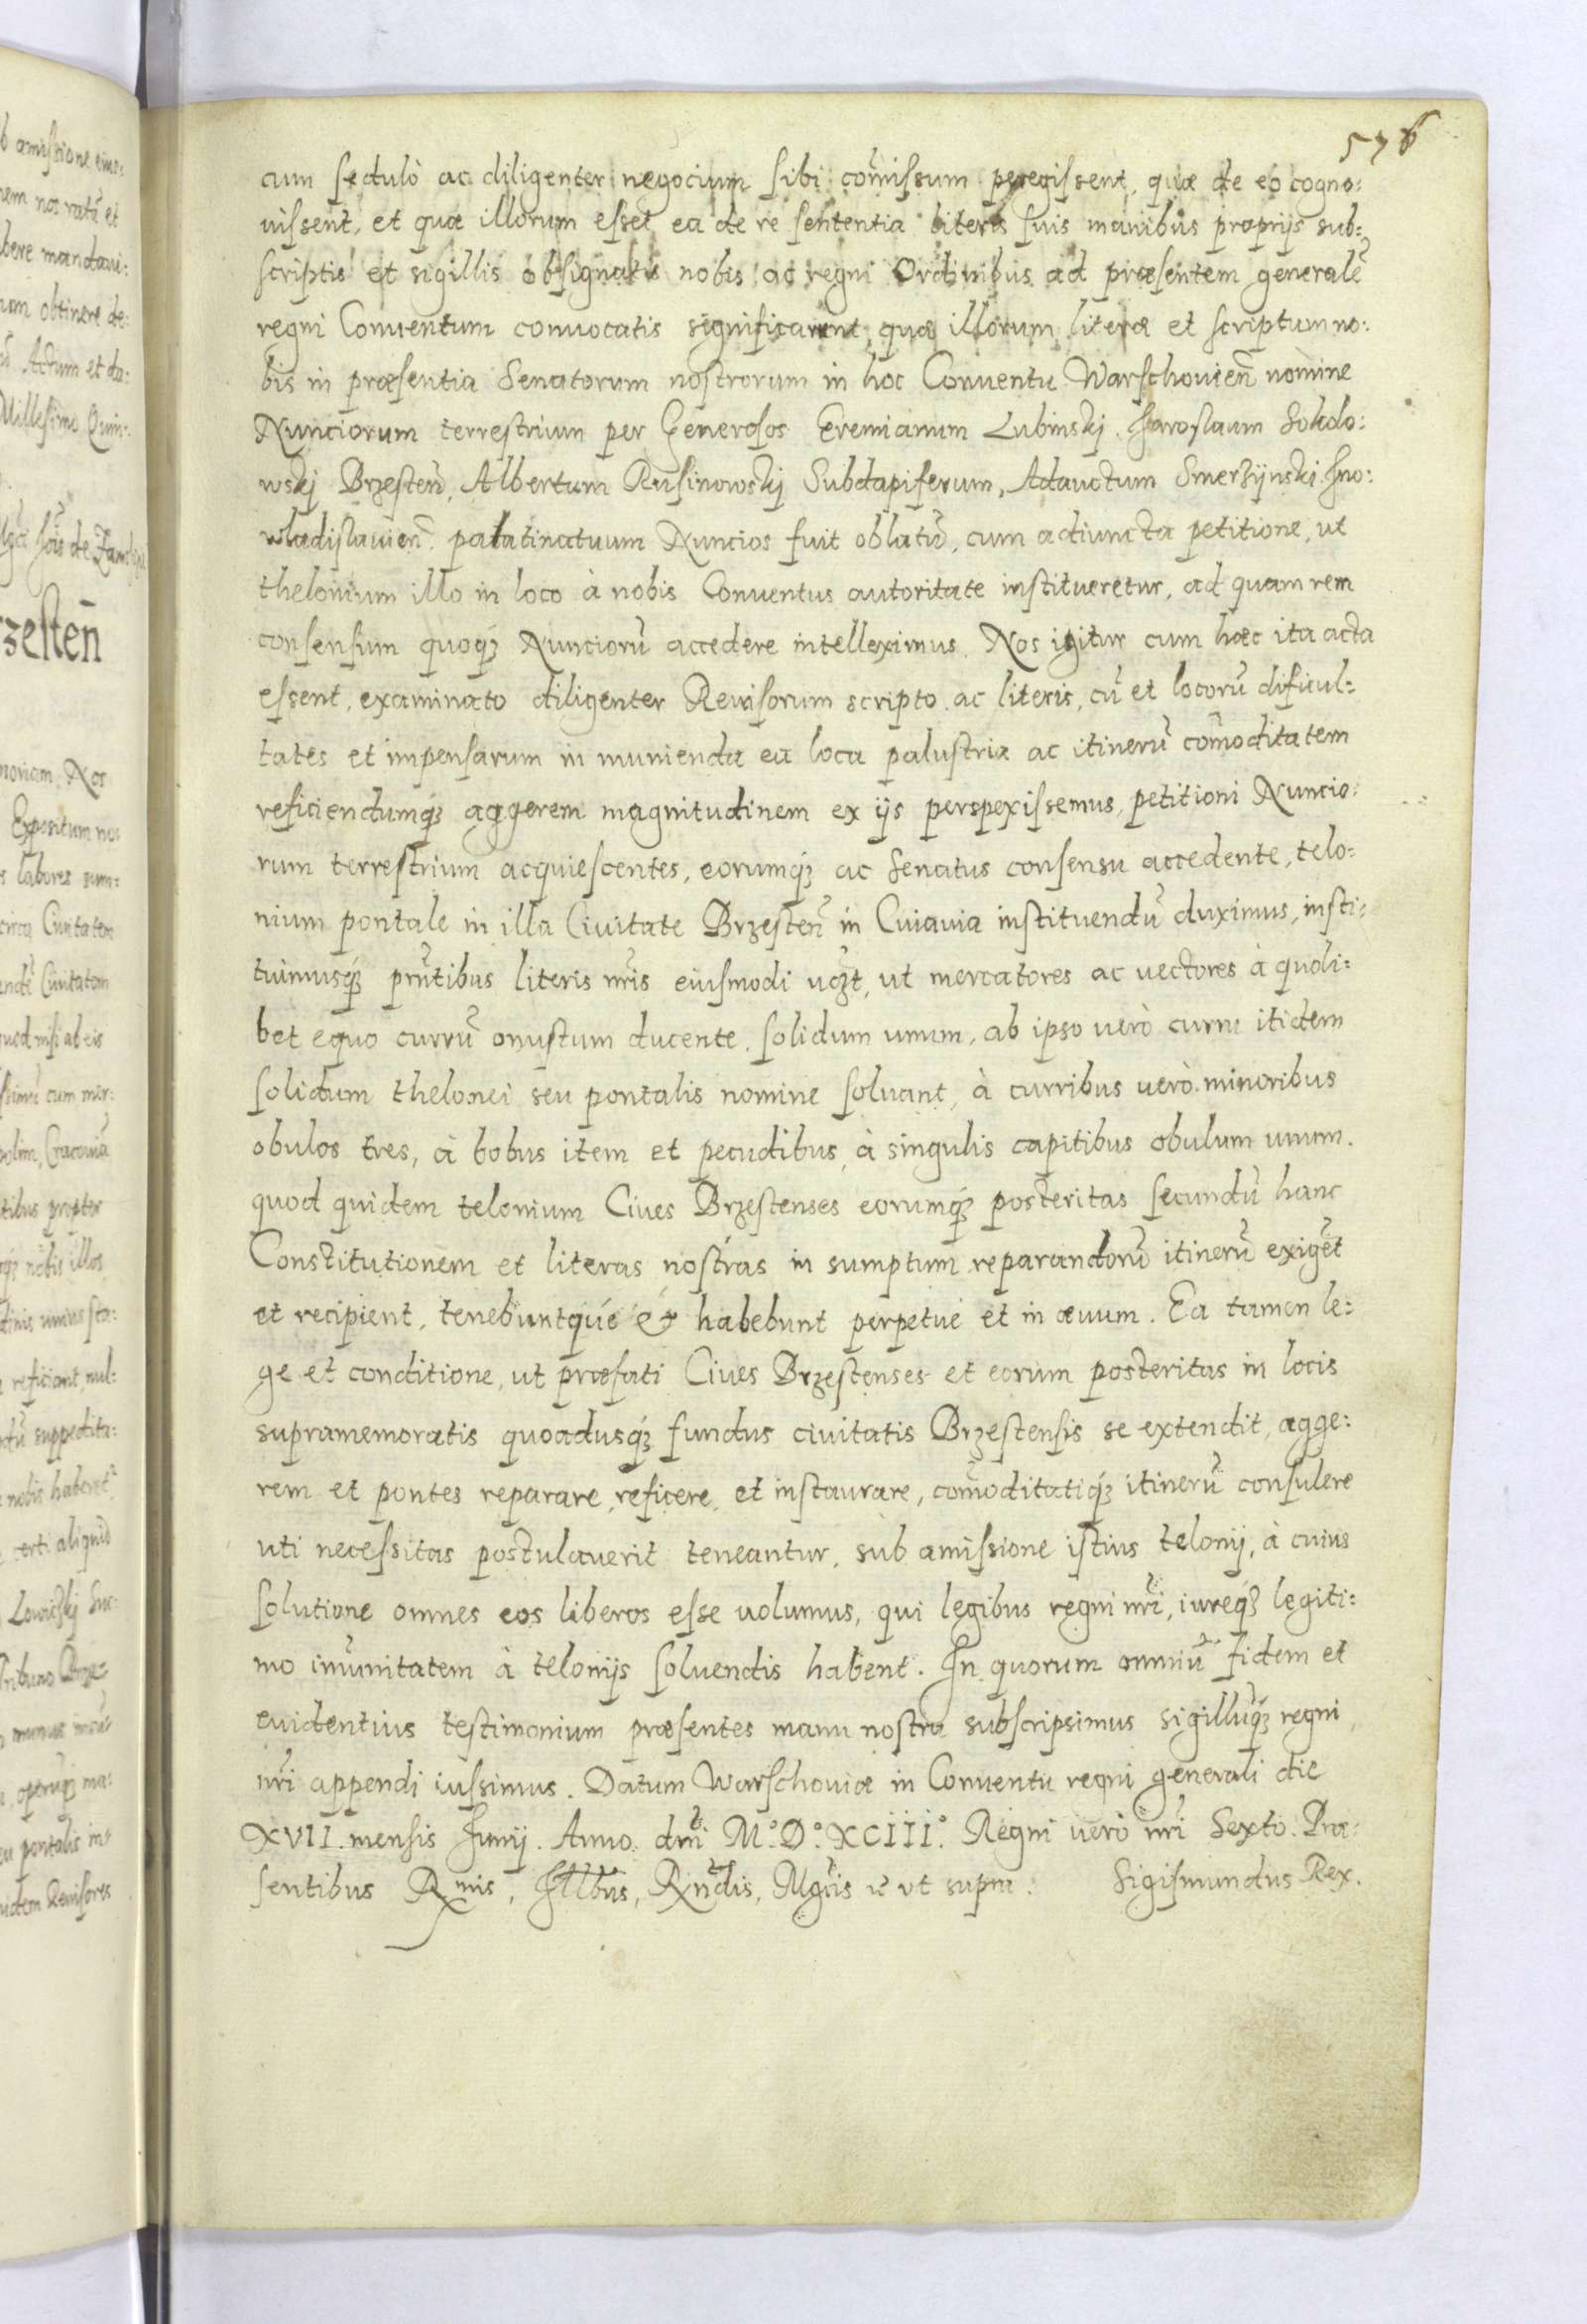 576
cum sedulò ac diligenter negocium sibi com̃issum peregissent, quæ de eo cogno:
uissent, et quæ illorum esset ea de re sententia literis suis manibus proprijs sub:
scriptis et sigillis obsignatis nobis ac regni Ordinibus ad præsentem generalẽ
regni Conuentum conuocatis significarunt, quæ illorum literæ et scriptum no:
bis in præsentia Senatorum nostrorum in hoc Conuentu Warschouien̄ nomine
Nunciorum terrestrium per Generosos Eremianum Lubinskj Jaroslaum Sokolo:
wskj Brzesten̄, Albertum Rusinowskj Subdapiferum, Adauctum Smerzijnski Jno:
wladislauien̄. palatinatuum Nuncios fuit oblatũ, cum adiuncta petitione, ut
thelonium illo in loco à nobis Conuentus autoritate institueretur, ad quam rem
consensum quoqȝ Nunciorũ accedere intelleximus. Nos igitur cum hæc ita acta
essent, examinato diligenter Reuisorum scripto ac literis, cũ et locorũ dificul:
tates et impensarum in munienda ea loca palustria ac itinerũ com̃oditatem
reficiendumqȝ aggerem magnitudinem ex ijs perspexissemus, petitioni Nuncio:
rum terrestrium acquiescentes, eorumqȝ ac Senatus consensu accedente, telo:
nium pontale in illa Ciuitate Brzesten̄ in Cuiauia instituendũ duximus, insti:
tuimusqȝ prñtibus literis nr̃is eiusmodi uczt, ut mercatores ac uectores à quoli:
bet equo currũ onustum ducente, solidum unum, ab ipso uerò curru itidem
solidum thelonei seu pontalis nomine soluant, à curribus uerò minoribus
obulos tres, à bobus item et pecudibus, à singulis capitibus obulum unum.
quod quidem telonium Ciues Brzestenses eorumqȝ posteritas secundũ hanc
Constitutionem et literas nostras in sumptum reparandorũ itinerũ exigẽt
et recipient, tenebuntque et habebunt perpetuè et in æuum. Ea tamen le:
ge et conditione, ut præfati Ciues Brzestenses et eorum posteritas in locis
supramemoratis quoadusqȝ fundus ciuitatis Brzestensis se extendit, agge:
rem et pontes reparare, reficere, et instaurare, com̃oditatiqȝ itinerũ consulere
uti necessitas postulauerit teneantur, sub amissione istius telonij, à cuius
solutione omnes eos liberos esse uolumus, qui legibus regni nr̃i, iureqȝ legiti:
mo im̃unitatem à telonijs soluendis habent. In quorum omniũ fidem et
euidentius testimonium præsentes manu nostra subscripsimus sigillũqȝ regni
nr̃i appendi iussimus. Datum Warschouiæ in Conuentu regni generali die
XVII mensis Junij. Anno dñi M.° D.° XCIII.° Regni uerò nr̃i Sexto. Præ:
sentibus Rx̃mis, Jllbus, Rx̃ndis, Mg̃cis ꝛc̃ ut supra. Sigismundus Rex.